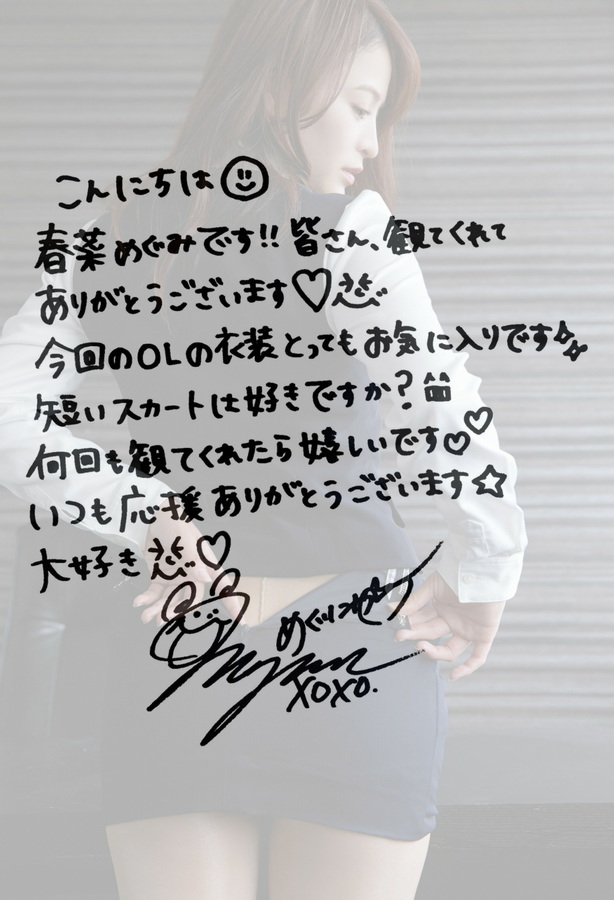 こんにちは☺
春菜めぐみです!! 皆さん、観てくれて
ありがとうございます♡
今回のOLの衣装とってもお気に入りです☆
短いスカートは好きですか?
何回も観てくれたら嬉しいです♡♡
いつも応援ありがとうございます☆
大好き♡
XOXO.